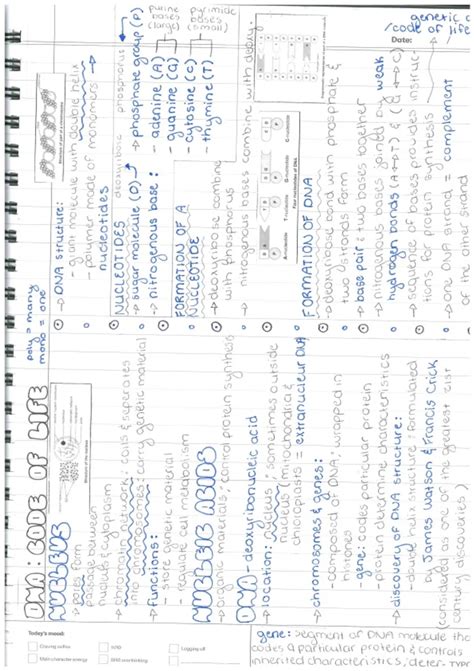 DNA: CODE OF LIFE
poly = many
mono = one
NUCLEUS
→ pores form
passage between
nucleus & cytoplasm
→ chromatin network: coils & seperates
into chromosomes: carry genetic material
→ functions:
- store genetic material
- regulate cell metabolism
NUCLEIC ACIDS
→ organic materials; control protein synthesis
DNA - deoxyribonucleic acid
→ location: nucleus; sometimes outside
nucleus (mitochondria &
chloroplasts) = extranuclear DNA
→ chromosomes & genes:
- composed of DNA; wrapped in
histones
- gene: codes particular protein
- protein determine characteristics
→ discovery of DNA structure:
- double helix structure: formulated
by James Watson & Francis Crick
(considered as one of the greatest disc
overies of the century)
Today's mood:
LOL
Logging off
gene: segment of DNA molecule tha
codes a particular protein & controls
inherited characteristics;
→ DNA structure:
- giant molecule with double helix
- polymer made of monomers:
nucleotides
deoxyribose
phosphorus
NUCLEOTIDES
→ sugar molecule (D)
→ phosphate group (P)
→ nitrogenous base:
- adenine (A)
- guanine (G)
- cytosine (C)
- thymine (T)
purine
bases
(large)
pyrimide
bases
(small)
FORMATION OF A
NUCLEOTIDE
→ deoxyribose combine
with phosphorus
→ nitrogenous bases combine with deoxy.
A-nucleotide
T-nucleotide
G-nucleotide
C-nucleotide
Four nucleotides of DNA
FORMATION OF DNA
→ deoxyribose bond with phosphate &
two strands form
→ base pair: two bases together
→ nitrogenous bases joined by weak
hydrogen bonds (A↔T) & (G↔C)
→ sequence of bases provides instruc
tions for protein synthesis
→ one DNA strand = complement
of the other strand
Date:
genetic
code of life